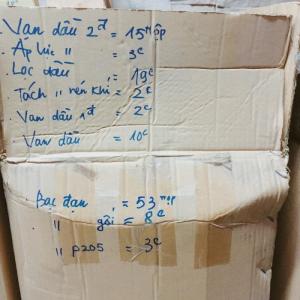 Van dầu 2đ = 15 Hộp
Áp lực " = 3c
Lọc dầu , = 19c
Tách " nén khí = 2c
Van dầu 1đ = 2c
Van dầu = 10c
Bạc đạn , = 53
" gối = 8c
" P205 = 3c